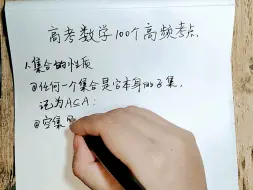 高考数学100个高频考点
1.集合的性质
①任何一个集合是它本身的子集,
记为A⊆A;
②空集